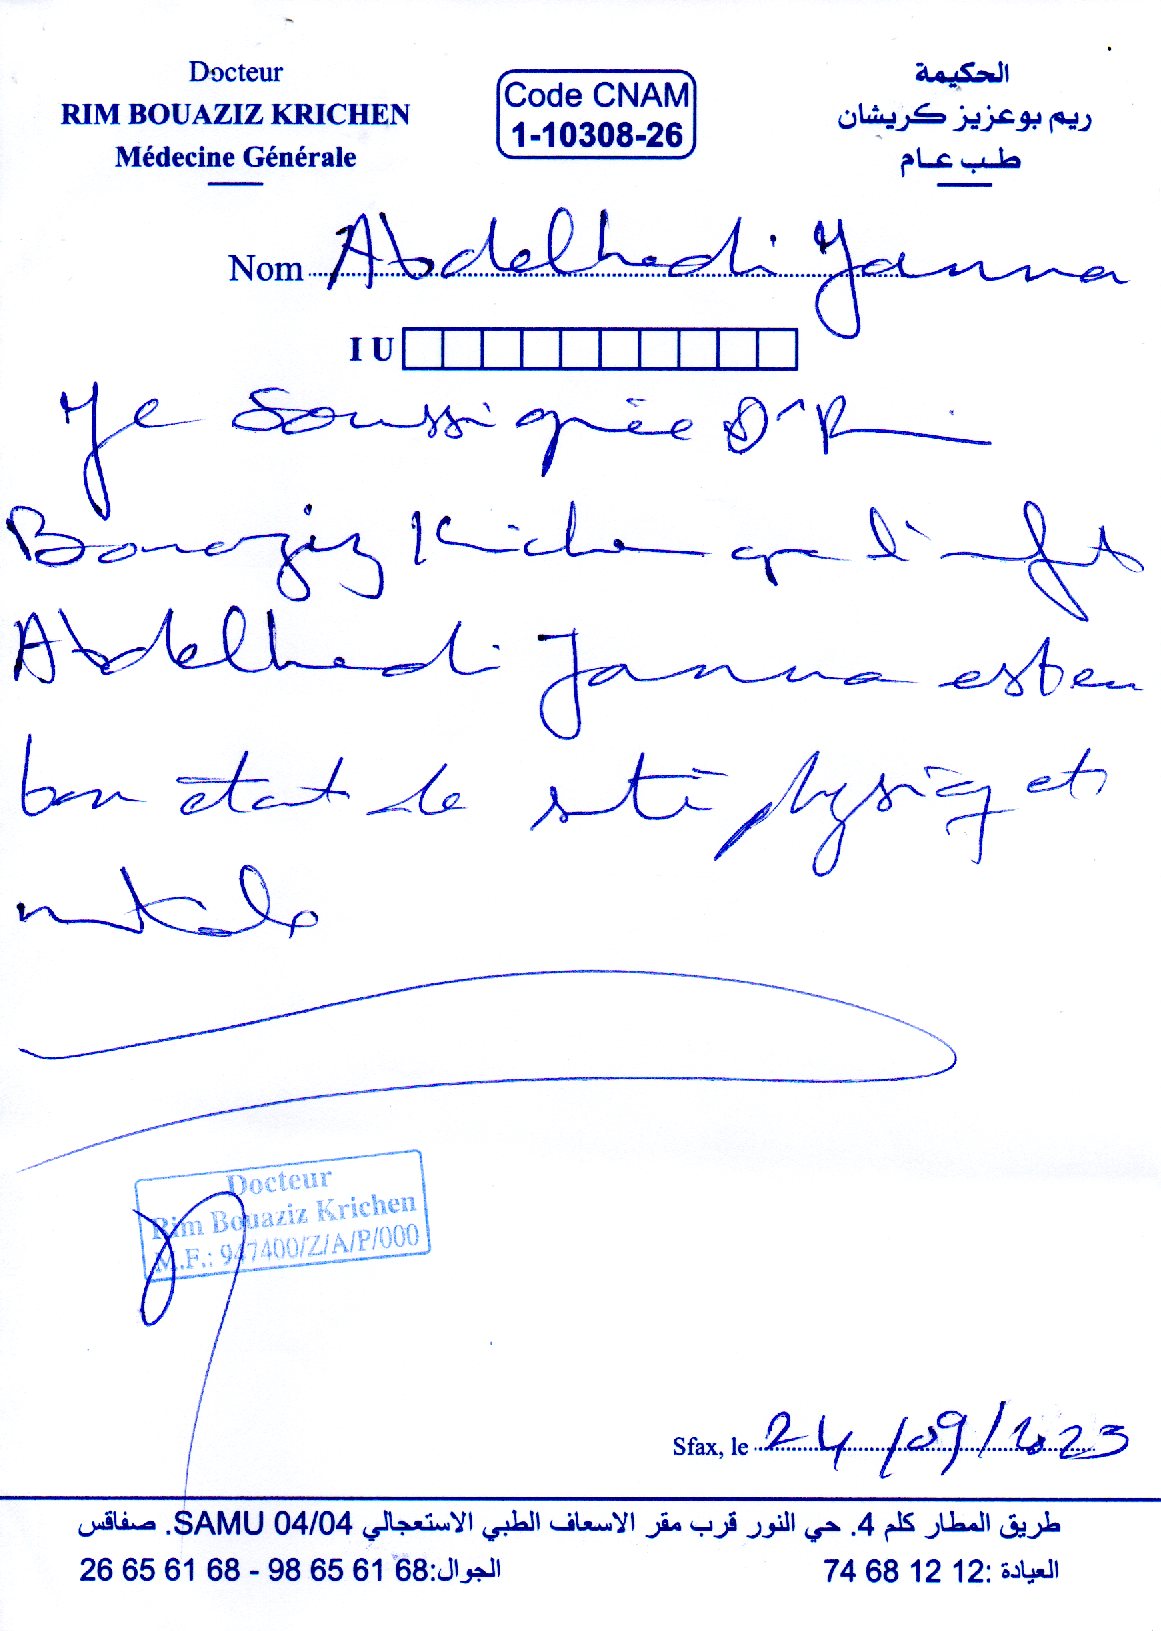 Docteur
RIM BOUAZIZ KRICHEN
Médecine Générale
Code CNAM
1-10308-26
الحكيمة
ريم بوعزيز كريشان
طب عام
Nom Abdelhedi Janna
I U
Je Soussignée Dr Rim
Bouaziz Krichen que l'enfant
Abdelhedi Janna est en
bon état de santé physiq et
mentale
Docteur
Rim Bouaziz Krichen
M.F.: 947400/Z/A/P/000
Sfax, le 24/09/2023
طريق المطار كلم 4. حي النور قرب مقر الاسعاف الطبي الاستعجالي SAMU 04/04. صفاقس
العيادة :12 12 68 74
الجوال:68 61 65 98 - 68 61 65 26